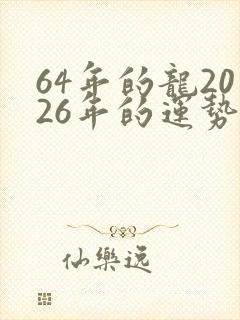 64年的龍20
26年的運勢
仙樂遥